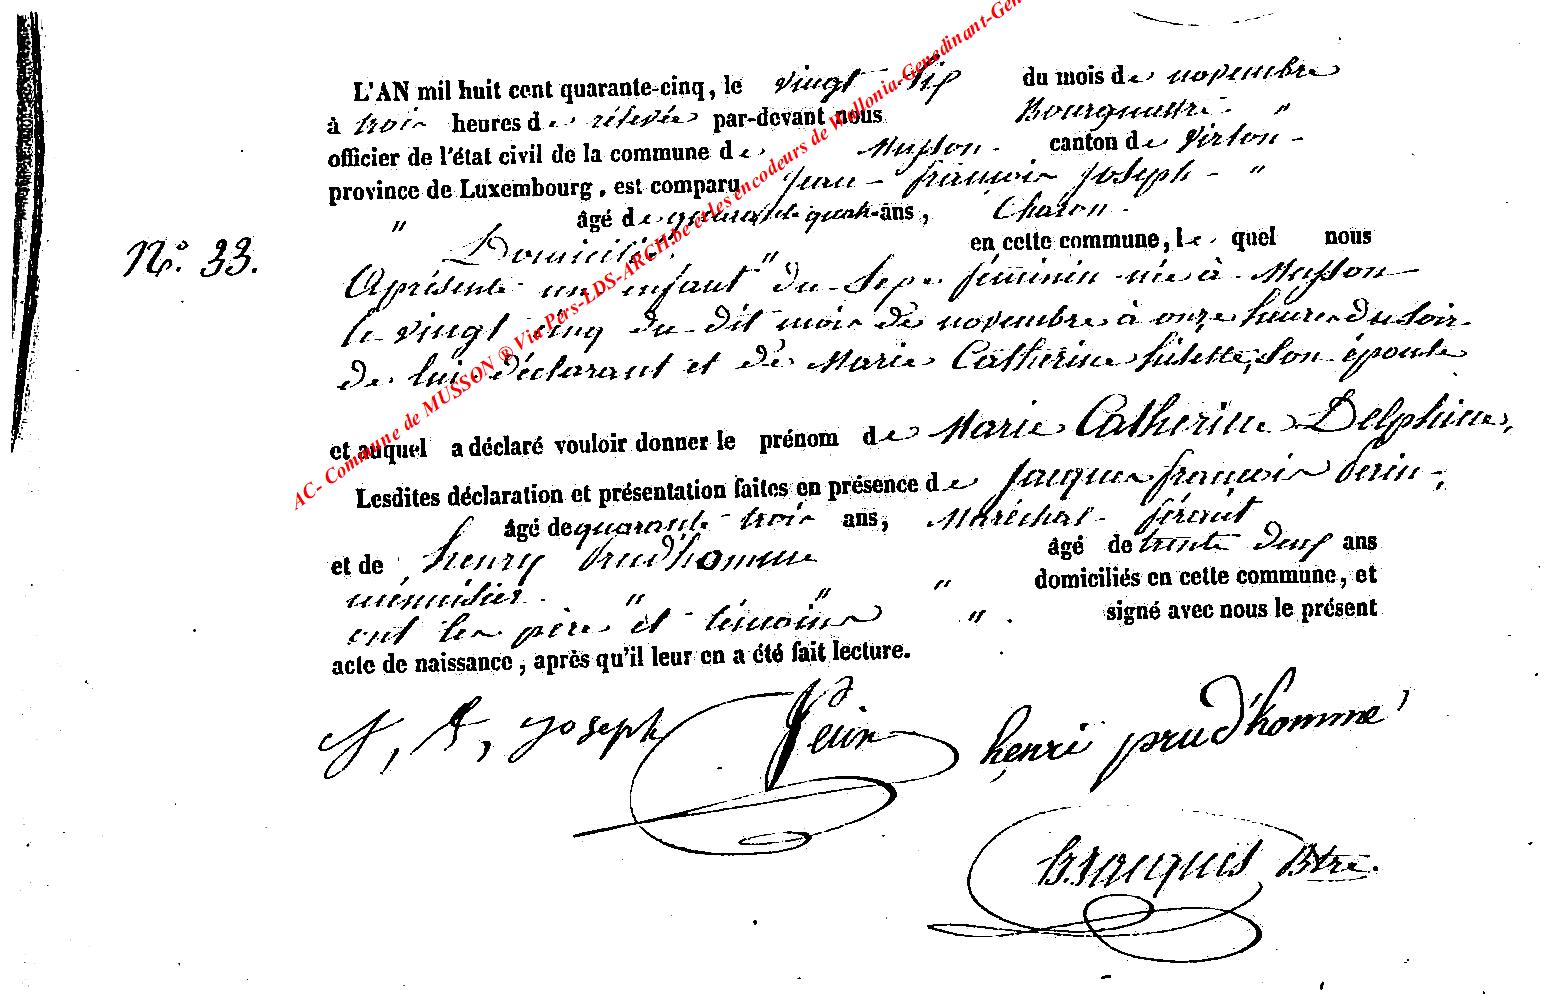 L'AN mil huit cent quarante-cinq, le vingt six du mois de novembre
à trois heures de relevée par-devant nous Bourgmestre "
officier de l'état civil de la commune de Musson canton de Virton
province de Luxembourg, est comparu Jean françois Joseph "
" âgé de quarante quatre ans, Charon
N.° 33.
Domicilié " en cette commune, le quel nous
a présenté un enfant du Sexe féminin née à Musson
le vingt cinq du dit mois de novembre à onze heures du Soir
de lui déclarant et de Marie Catherine Son épouse
et auquel a déclaré vouloir donner le prénom de Marie Catherine Delphine,
Lesdites déclaration et présentation faites en présence de Jacques françois Perin,
âgé de quarante trois ans, Maréchal férant
et de henry Prud'homme âgé de trente deux ans
menuisier " " " domiciliés en cette commune, et
ont les père et témoins " signé avec nous le présent
acte de naissance, après qu'il leur en a été fait lecture.
J, F, Joseph Perin henri prud'homme
B. Jacques Btre.
AC- Commune de MUSSON ® Via Pers-LDS-ARCH.be et les encodeurs de Wallonia-Genedinant-Gen